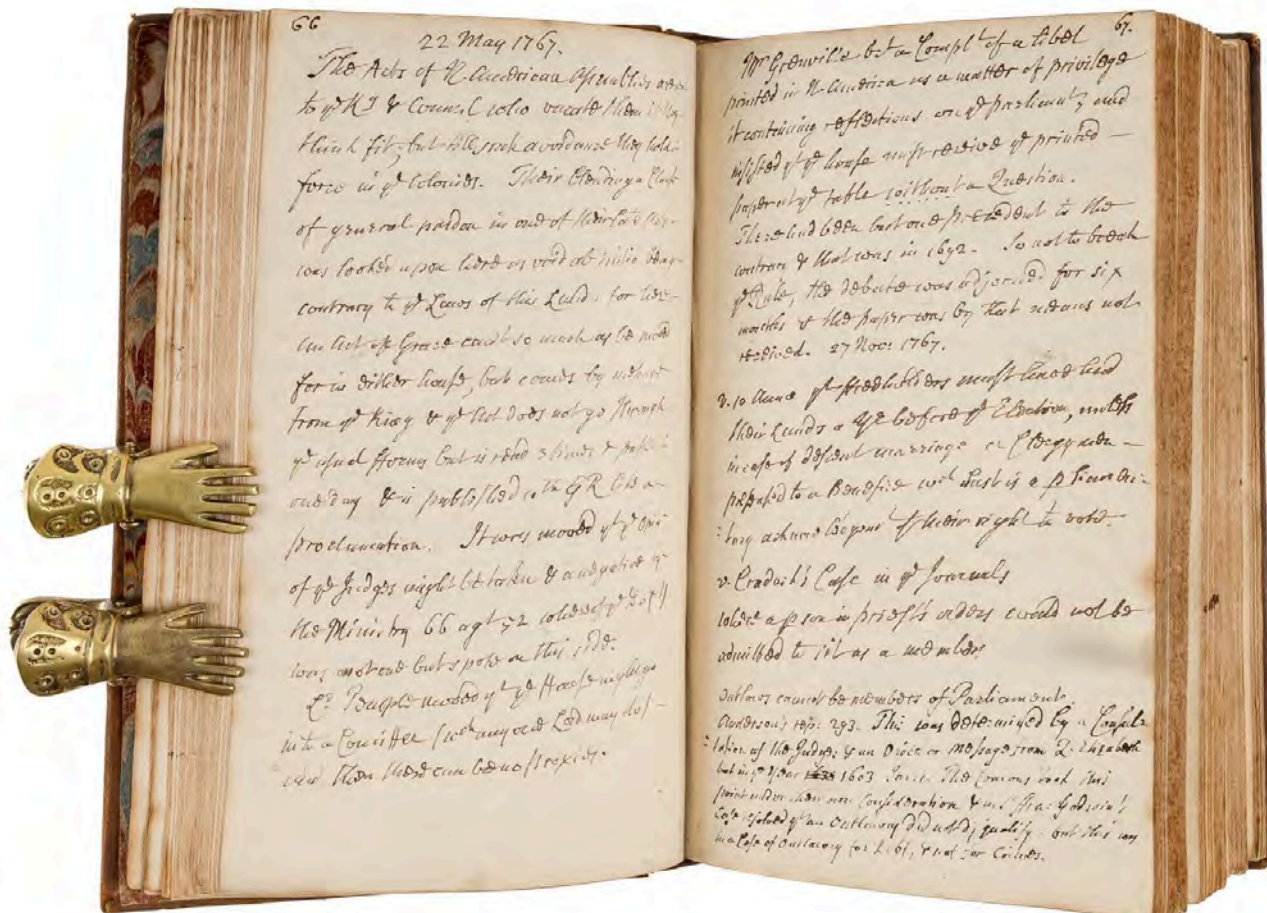 66
22 May 1767.
The Acts of N. American Assemblies are
to ye K. & Council who vacate them if they
think fit, but till such avoidance they hold
force in ye Colonies. Their blending a Clause
of general pardon in one of their late
was looked upon here as void ab initio being
contrary to ye Laws of this Land. for here
an Act of Grace can't so much as be moved
for in either house, but comes by message
from ye King & ye Act does not go through
ye usual fforms but is read & pass'd in
one day & is published with GR like a
proclamation. It was moved yt ye Opin
of ye Judges might be taken & a negative
the Ministry 66 agt 52 whereof ye
was not one but spoke on this side.
Ld. moved yt ye House might go
into a Comittee (wch any one Lord may
and then there can be no proxies.
67.
Mr Grenville bt a Complt of a libel
printed in N. America as a matter of privilege
it containing reflections on ye parliamt, and
insisted yt ye house must receive ye printed
paper at ye table without a Question.
There had been but one precedent to the
contrary & that was in 1692. So not to break
ye Rule, the debate was adjorned for six
months & the paper was by that means not
received. 27 Nov: 1767.
v. 10 Anne yt ffreeholders must have had
their Lands a Yr before ye Election, unless
in case of descent marriage or Clergymen
preferred to a Benefice wch last is a
right to vote.
v. Cradock's Case in ye Journals
where a pson in priest's orders would not be
admitted to sit as a member
Outlaws cannot be members of Parliament.
Anderson's rep: 293. This was determined by a Consul=
tation of the Judges & an Order or Message from Q. Elizabeth
but in ye Year 1603 The Comons took this
point under their own Consideration & in Sr ffra: Godwin's
Case resolved yt an Outlawry did not disqualify. but this was
in a Case of Outlawry for Debt, & not for Crimes.